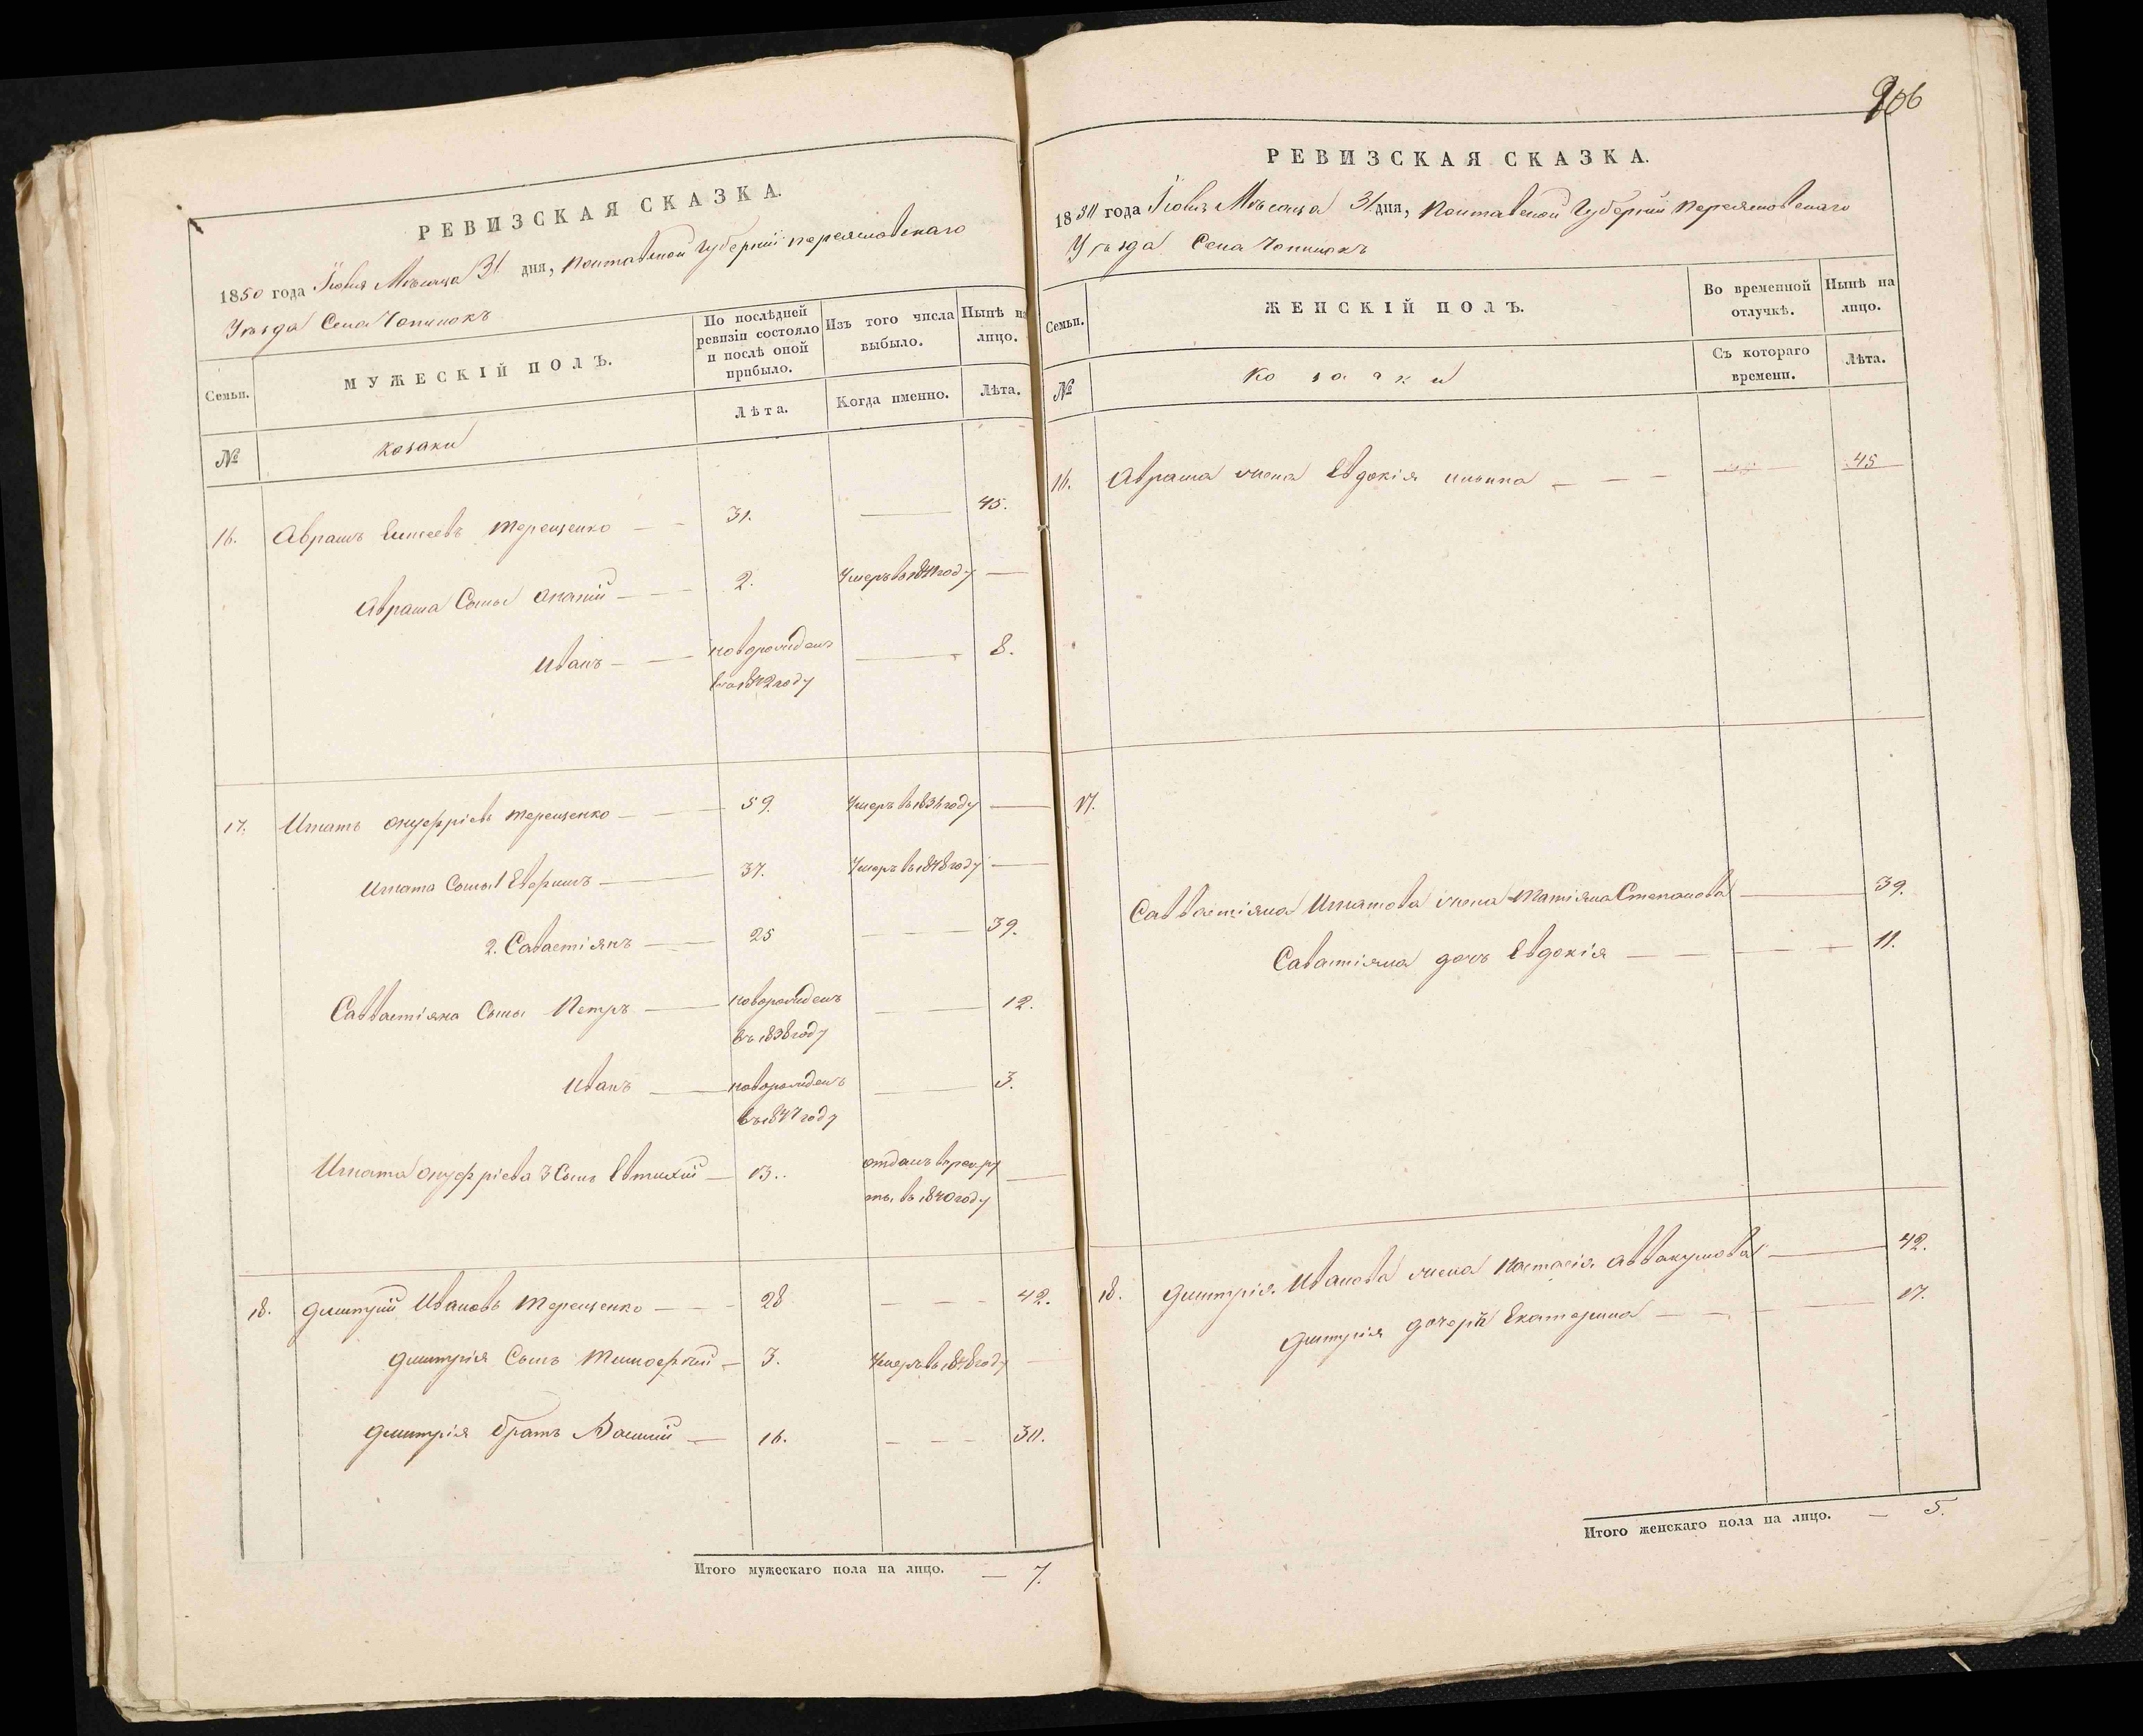 906
РЕВИЗСКАЯ СКАЗКА.
1850 года Іюля Мѣсяца 31 дня, Полтавской Губерніи Переяславскаго
Уѣзда Села
Семьи.
МУЖЕСКІЙ ПОЛЪ.
По послѣдней ревизіи состояло и послѣ оной прибыло.
Изъ того числа выбыло.
Нынѣ на лицо.
№
Козаки
Лѣта.
Когда именно.
Лѣта.
16. Авраамъ Елисеевъ Терещенко — — 31. — 45.
Авраама Сыны Ананій — — 2. Умеръ въ 1841 году —
Иванъ — — новорожденъ — 8.
въ 1842 году
17. Игнатъ Онуфріевъ Терещенко — — 59. Умеръ въ 1836 году —
Игната Сыны 1 Ефимъ — 37. Умеръ въ 1848 году —
2. Савастіянъ — 25 — — — 39.
Саввастіяна Сыны Петръ — новорожденъ — — 12.
въ 1838 году
Иванъ — новорожденъ — 3.
въ 1847 году
Игната Онуфріева 3 Сынъ Евтихій — 13.. отданъ въ рекру —
ты въ 1840 году
18. Дмитрій Ивановъ Терещенко — — 28 — — — 42.
Дмитрія Сынъ Тимофѣй — 3. Умеръ въ 1848 году —
Дмитрія братъ Василій — 16. — — — 30.
Итого мужескаго пола на лицо. — 7.
РЕВИЗСКАЯ СКАЗКА.
1850 года Іюля Мѣсяца 31 дня, Полтавской Губерніи Переяславскаго
Уѣзда Села
Семьи.
ЖЕНСКІЙ ПОЛЪ.
Во временной отлучкѣ.
Нынѣ на лицо.
№
Козаки
Съ котораго времени.
Лѣта.
16. Авраама жена Евдокія — — — 45
17.
Саввастіяна Игнатова жена Татіяна Степанова — 39.
Савастіяна дочь Евдокія — — — — — 11.
18. Дмитрія Иванова жена Настасія Аввакумова — 42.
Дмитрія дочерь Екатерина — — — — 17.
Итого женскаго пола на лицо. — 5.